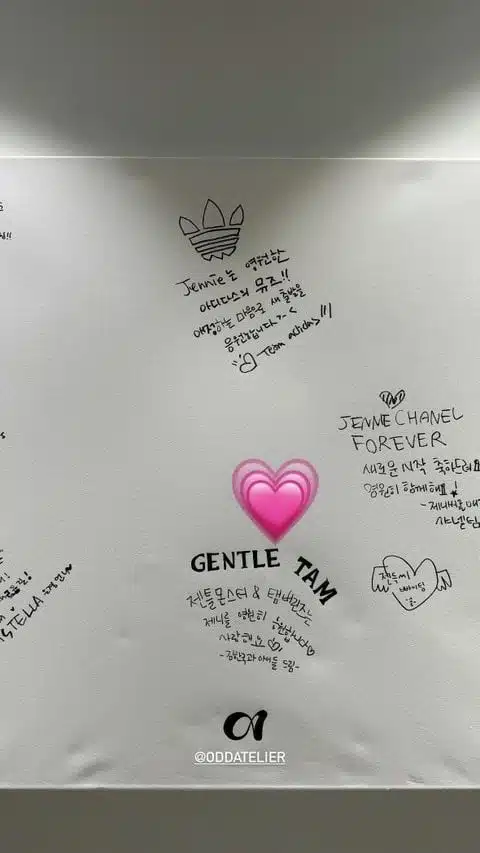 Jennie는 영원한
아디다스의 뮤즈!!
애정하는 마음으로 새 출발을
응원합니다 >.<
-Team adidas
JENNIE CHANEL
FOREVER
새로운 시작 축하드려요
영원히 함께해요!
샤넬팀
GENTLE TAM
젠틀몬스터 & 탬버린즈는
제니를 영원히 응원합니다
사랑해요
드림-
젠득씨
STELLA
@ODDATELIER